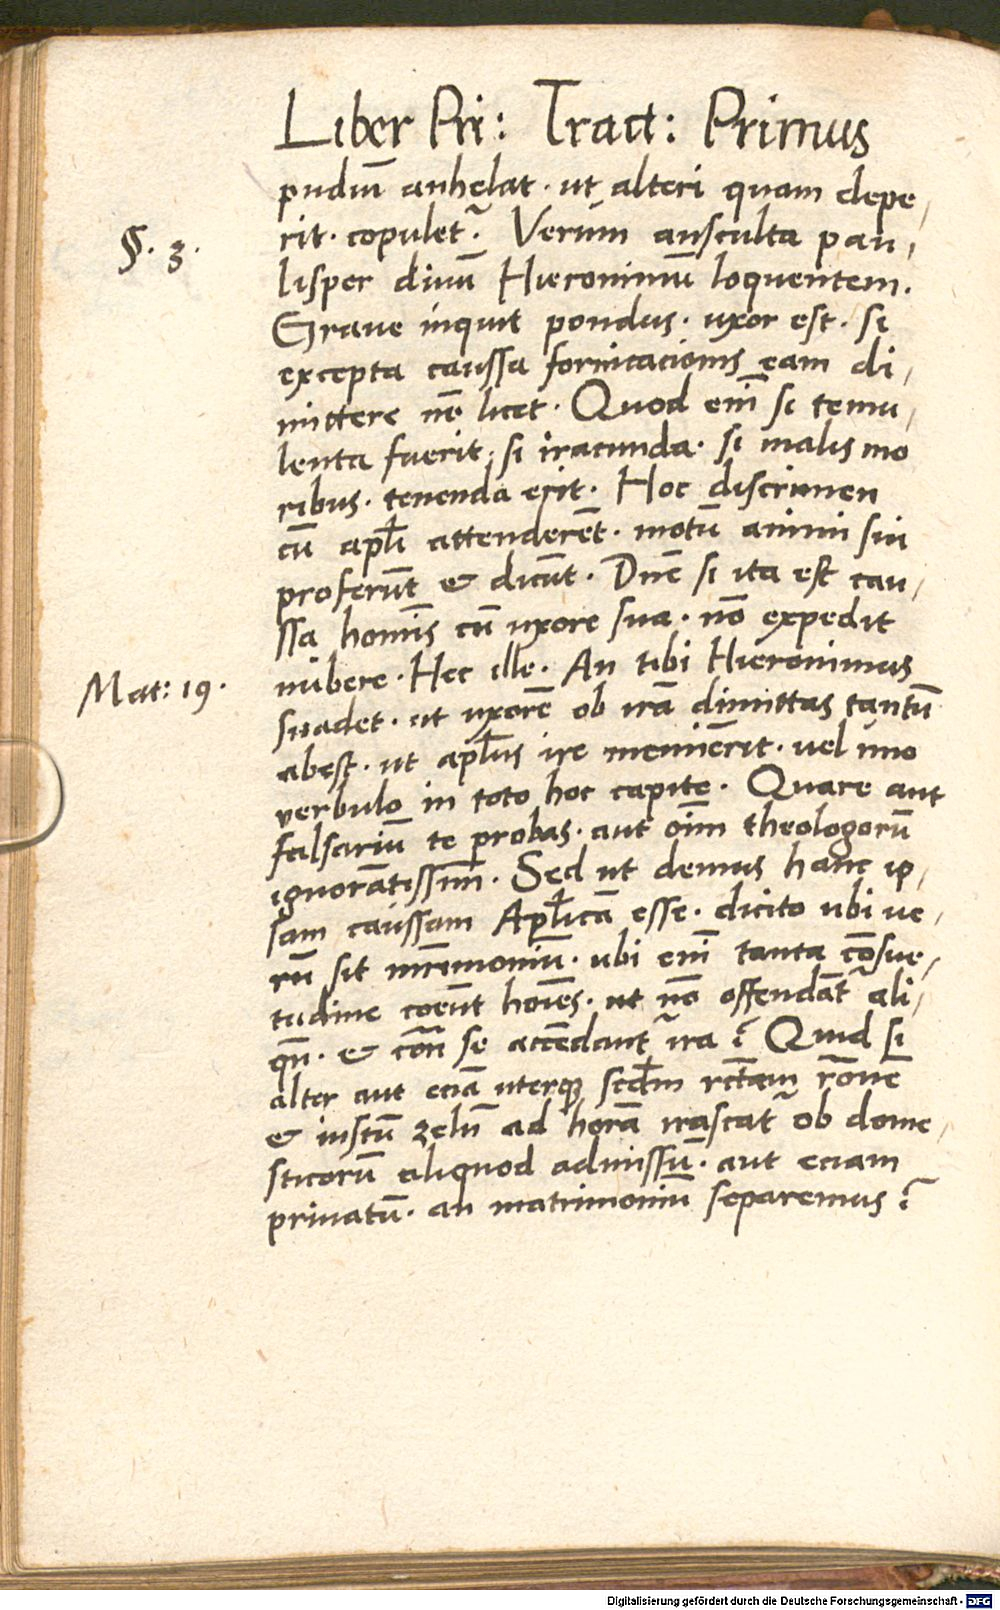 Liber Pri: Tract: Primus
pudiū anhelat · ut alteri quam depe,
§. 3. rit · copulet᷑. Verum ausculta pau,
lisper diuū Hieronimū loquentem.
Graue inquit pondus · uxor est · si
excepta caussa fornicacionis eam di,
mittere nō licet · Quod enī si temu,
lenta fuerit, si iracunda · si malis mo
ribus · tenenda erit · Hoc discrimen
cū apłi attenderēt · motū animi sui
proferūt & dicūt · Dnē si ita est cau,
ssa homīs cū uxore sua · nō expedit
nubere · Hec ille · An tibi Hieronimus
Mat: 19. suadet · ut uxorē ob irā dimittas tantū
abest · ut apłus ire meminerit · uel uno
verbulo in toto hoc capite · Quare aut
falsariū te probas · aut oīm theologorū
ignorātissim̄ · Sed ut demus hanc ip,
sam caussam Apłicā esse · dicito ubi ue,
rū sit mr̄imoniū · ubi enī tanta cōsue,
tudine coeūt hoīes · ut nō offendāt᷑ ali,
qn̄ · & cōn se accēdant᷑ ira ? Quid si
alter aut eciā uterqꝫ scdm̄ rc̄tam rōnē
& iustū zelū ad horā irascat᷑ ob dome,
sticorū aliquod admissū · aut eciam
priuatū · an matrimoniū separemus ?
Digitalisierung gefördert durch die Deutsche Forschungsgemeinschaft · DFG